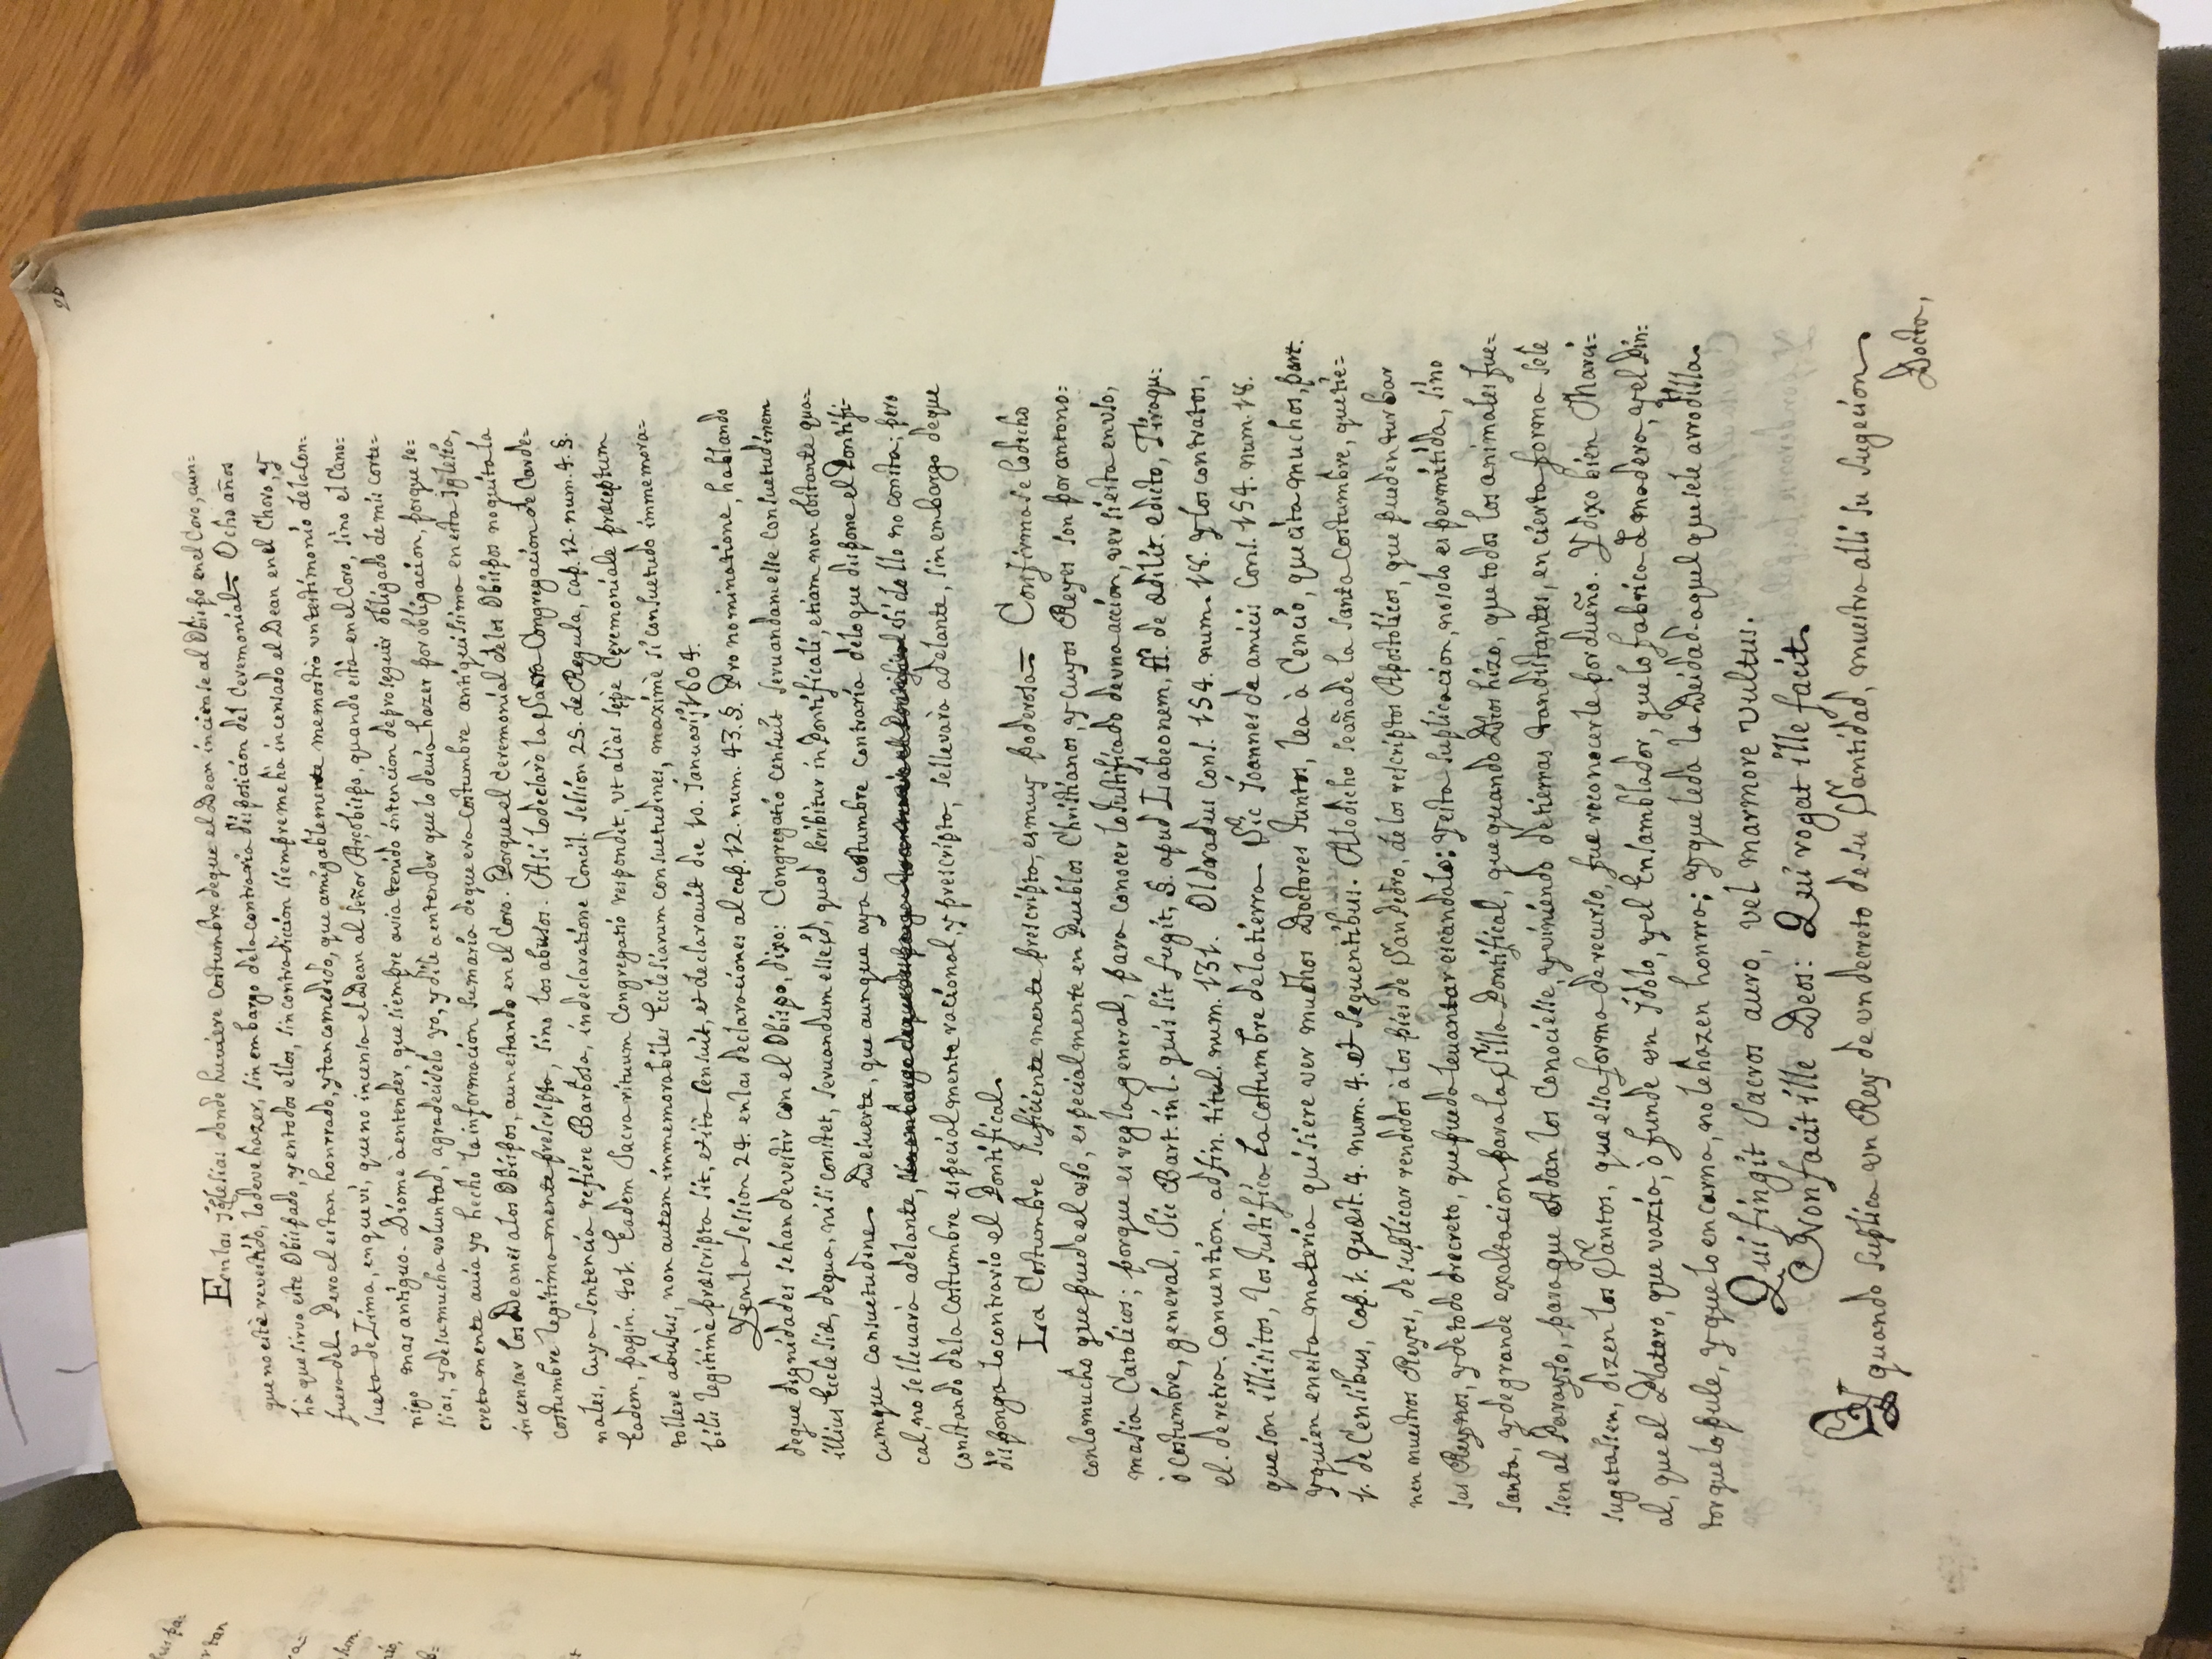 20
En las Iglesias donde huviere costumbre de que el Dean inciense al Obispo en el Coro, aun=
que no estè revestido, lo deve hazer, sin embargo de la contraria disposicion del Ceremonial= Ocho años
hà que sirvo este Obispado, y en todos ellos, sin contradiccion siempre me hà incensado el Dean en el Choro, y
fuera del. Pero el es tan honrrado, y tan comedido, que amigablemente me mostrò vn testimonio de la Con=
sueta de Lima, en que vi, que no incensa el Dean al Señor Arçobispo, quando està en el Coro, sino el Cano=
nigo mas antiguo. Diome a entender, que siempre avia tenido intencion de proseguir obligado de mis corte=
sias, y de su mucha voluntad, agradecìdelo yo, y dile a entender que lo devia hazer por obligacion, porque se=
creta mente auia yo hecho la informacion sumaria de que era costumbre antiquissima en esta Iglesia,
incensar los Deanes a los Obispos, aun estando en el Coro. Porque el Ceremonial de los Obispos no quita la
costumbre legitima mente prescripta, sino los abusos. Asi lo declarò la Sacra Congregacion de Carde=
nales, cuya sentencia refiere Barbosa, in declaratione Concil. session 25. de Regula, cap. 12. num. 4. §.
Eadem, pagin. 401. Eadem Sacra rituum Congregatio respondit, vt aliàs sępè Cęremoniale præceptum
tollere abusus, non autem immemorabiles Ecclesiarum consuetudines, maximè si consuetudo immemora=
bilis legitimè præscripta sit, et ità Censuit, et declarauit die 10. Januarij 1604.
Y en la session 24. en las declaraciones al cap. 12. num. 43. §. Pro nominatione, hablando
de que dignidades se han de vestir con el Obispo, dixo: Congregatio censuit seruandam esse consuetudinem
illius Ecclesiæ, de qua, nisi constet, seruandum esse id, quod scribitur in Pontificali, etiam non obstante qua=
cumque consuetudine. De suerte, que aunque aya costumbre contraria de lo que dispone el Pontifi-
cal, no se lleuarà adelante, sin embargo de que disponga lo contrario el Pontifical si de llo no consta; pero
constando de la costumbre especial mente racional, y prescripta, se llevarà adelante, sin embargo de que
disponga lo contrario el Pontifical.
La Costumbre suficiente mente prescripta, es muy poderosa= Confirmase lo dicho
con lo mucho que puede el vso, especialmente en Pueblos Christianos, y cuyos Reyes son por antono=
masia Catolicos; porque es regla general, para conocer lo Justificado de vna accion, ver si esta en vso,
ò costumbre, general. Sic Bart. in l. quis sit fugit, §. apud Labeonem, ff. de ædilit. edicto, Tiraqu=
el. de retra. convention. ad fin. titul. num. 131. Oldradus cons. 154. num. 18. Y los contratos,
que son illisitos, los Justifica la costumbre de la tierra. Sic Joannes de amicis Cons. 154. num. 18.
y quien en esta materia quisiere ver muchos Doctores Juntos, lea à Cencio, que cita muchos, part.
1. de Censibus, cap. 1. quæst. 4. num. 4. et sequentibus. A lo dicho se añade la santa costumbre, que tie=
nen nuestros Reyes, de suplicar rendidos à los pies de San Pedro, de los rescriptos Apostolicos, que pueden turbar
sus Reynos, y de todo drecreto, que pueda leuantar escandalo: y esta suplicacion, no solo es permitida, sino
santa, y de grande exaltacion para la Silla Pontifical, que quando Dios hizo, que todos los animales fue=
ssen al Parayso, para que Adan los Conociesse, y viniendo de tierras tan distantes, en cierta forma se le
sugetassen, dizen los Santos, que essa forma de recurso, fue reconocerle por dueño. Y dixo bien Marci=
al, que el Platero, que vazia, ò funde vn Idolo, y el Ensamblador, que lo fabrica de madera, y el Pin=
tor que lo pule, y que lo encarna, no le hazen honrra; y que le da la Deidad aquel que se le arrodilla.
Qui fingit Sacros auro, vel marmore vultus.
Non facit ille Deos: Qui rogat ille facit.
Y quando suplica vn Rey de vn decreto de su Santidad, muestra alli su sugecion.
Docta,